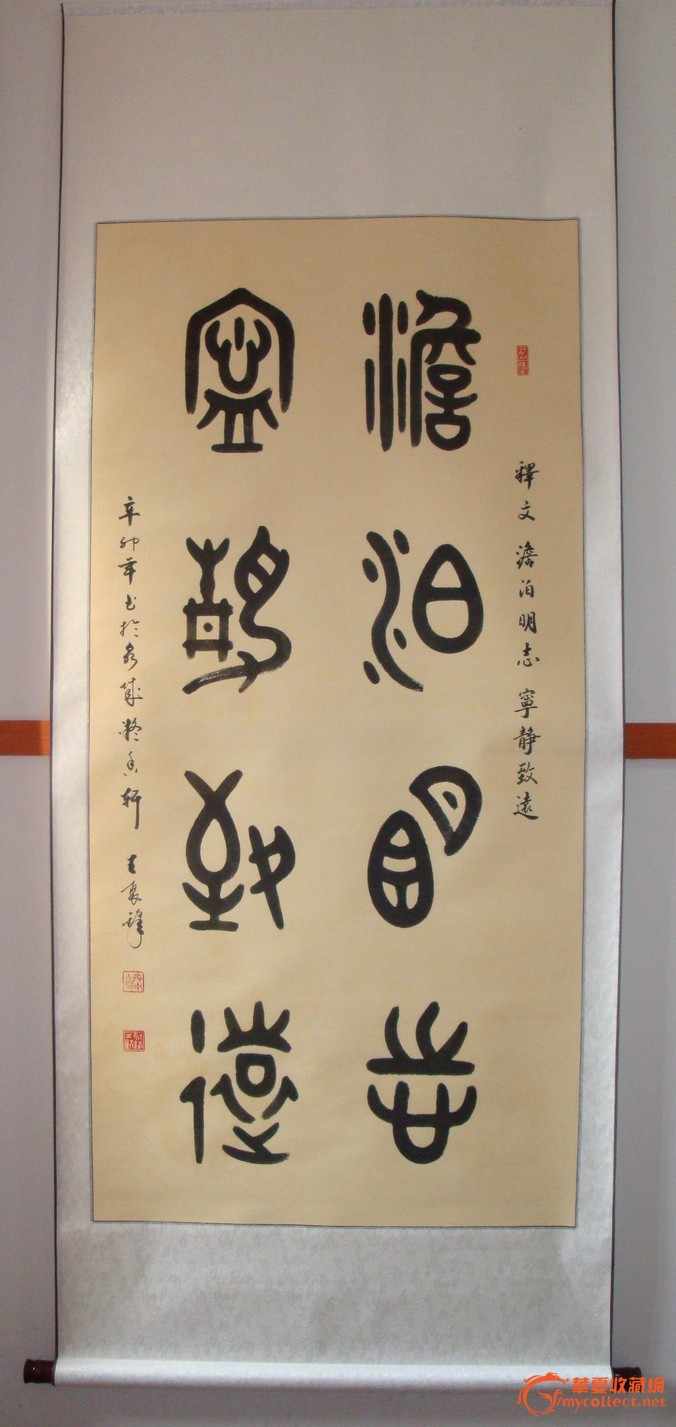 釋文 澹泊明志 寧靜致遠
澹泊明志
寧靜致遠
辛卯年書於泉城
軒
華夏收藏網
mycollect.net